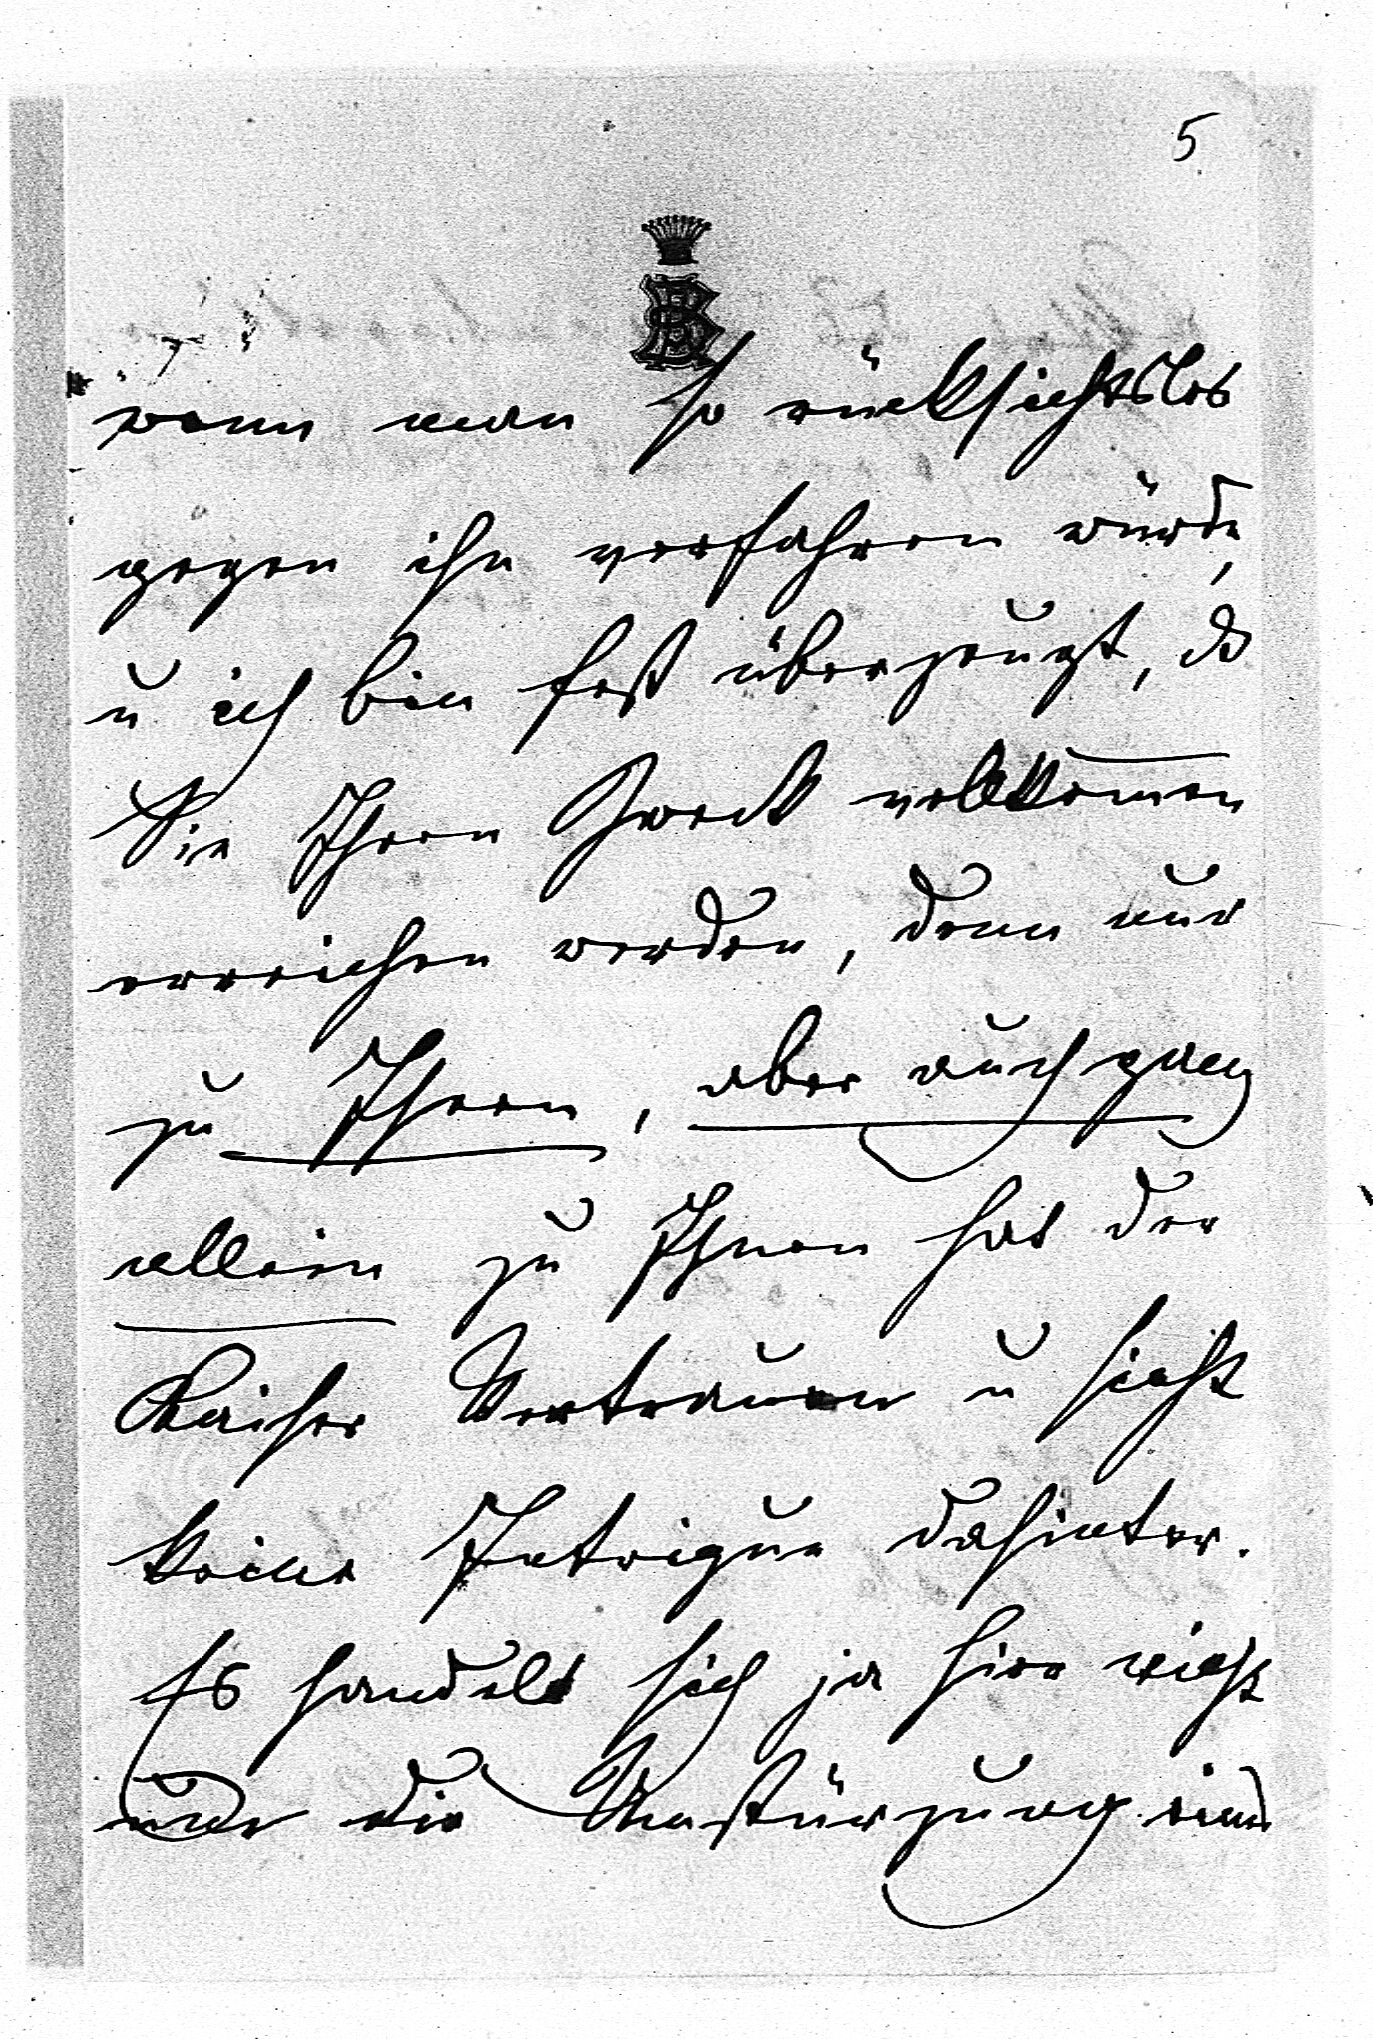 5
wenn man so rücksichtslos
gegen ihn verfahren würde,
u ich bin fest überzeugt, dß
Sie Ihren Zweck vollkom̅en
erreichen werden, denn nur
zu Ihnen, aber auch ganz
allein zu Ihnen hat der
Kaiser Vertrauen u sieht
keine Intrigue dahinter.
Es handelt sich ja hier nicht
nur die Umstürzung eines